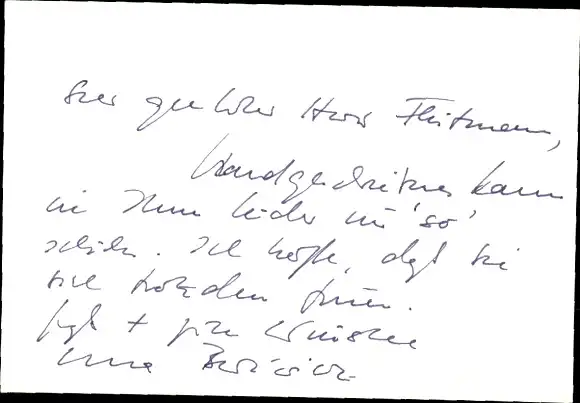 Sehr geehrter Herr Flістmann,
Handgeschriebenes kann
ich Ihnen leider nur 'so'
schicken. Ich hoffe, daß Sie
sich trotzdem freuen.
gute Wünsche